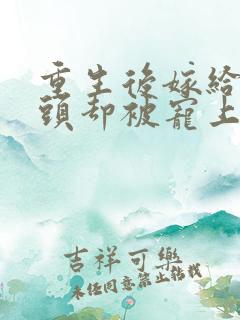 重生後嫁給
頭却被寵上
吉祥可樂
未經同意禁止轉載